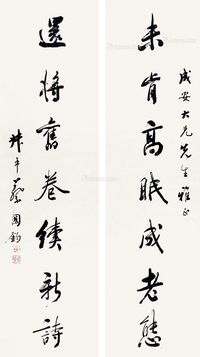 成安大兄先生雅正
未肯高眠成老態
還將舊卷續新詩
平蔡國鈞